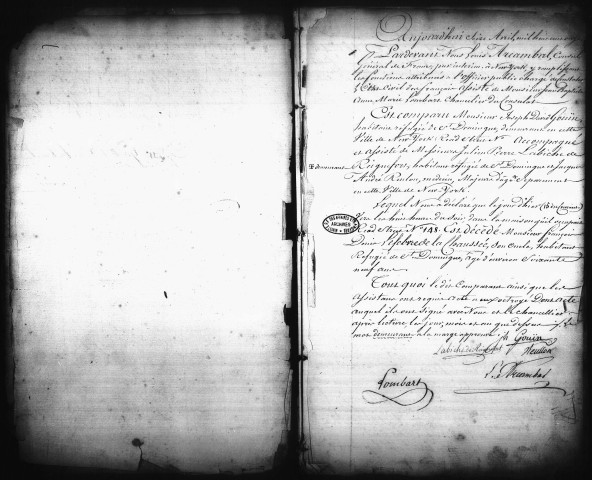 Aujourd'hui Seize Avril mil huit cent
Pardevant Nous Louis Arcambal, Consul
Général de France, par interim, à New York, y remplissant
les fonctions attribuées à l'officier public chargé
l'Etat Civil des français assisté de Monsieur Jean Baptiste
Anne Marie Lombart Chancelier du Consulat
Est comparu Monsieur Joseph David Gouin,
habitant réfugié de St. Domingue, demeurant en cette
Ville de New York Accompagné
et Assisté de Messieurs Julien Pierre Labiche de
Reignefort, habitant réfugié de St. Domingue et Jacques
demeurant
André médecin, Majeurs d'âge, Séparement
en cette Ville de New York.
Lequel Nous a déclaré que le jour d'hier (15 du Courant)
vers les huit heures du Soir, dans la maison qu'il occupait
Nº 148. Est décédé Monsieur françois
Denis Lefebvre de la Chaussée, Son Oncle, habitant
Réfugié de St. Domingue, âgé d'environ Soixante
neuf ans
Tous quoi le dit Comparant ainsi que les
Assistans ont requis acte à eux octroyé Dont acte
auquel ils ont Signé avec Nous et le Chancellier
après lecture, les jour, mois et an que dessus
mot demeurant à la marge approuvé
Gouin
Labiche de Reignefort
Lombart
L. Arcambal
ARCHIVES